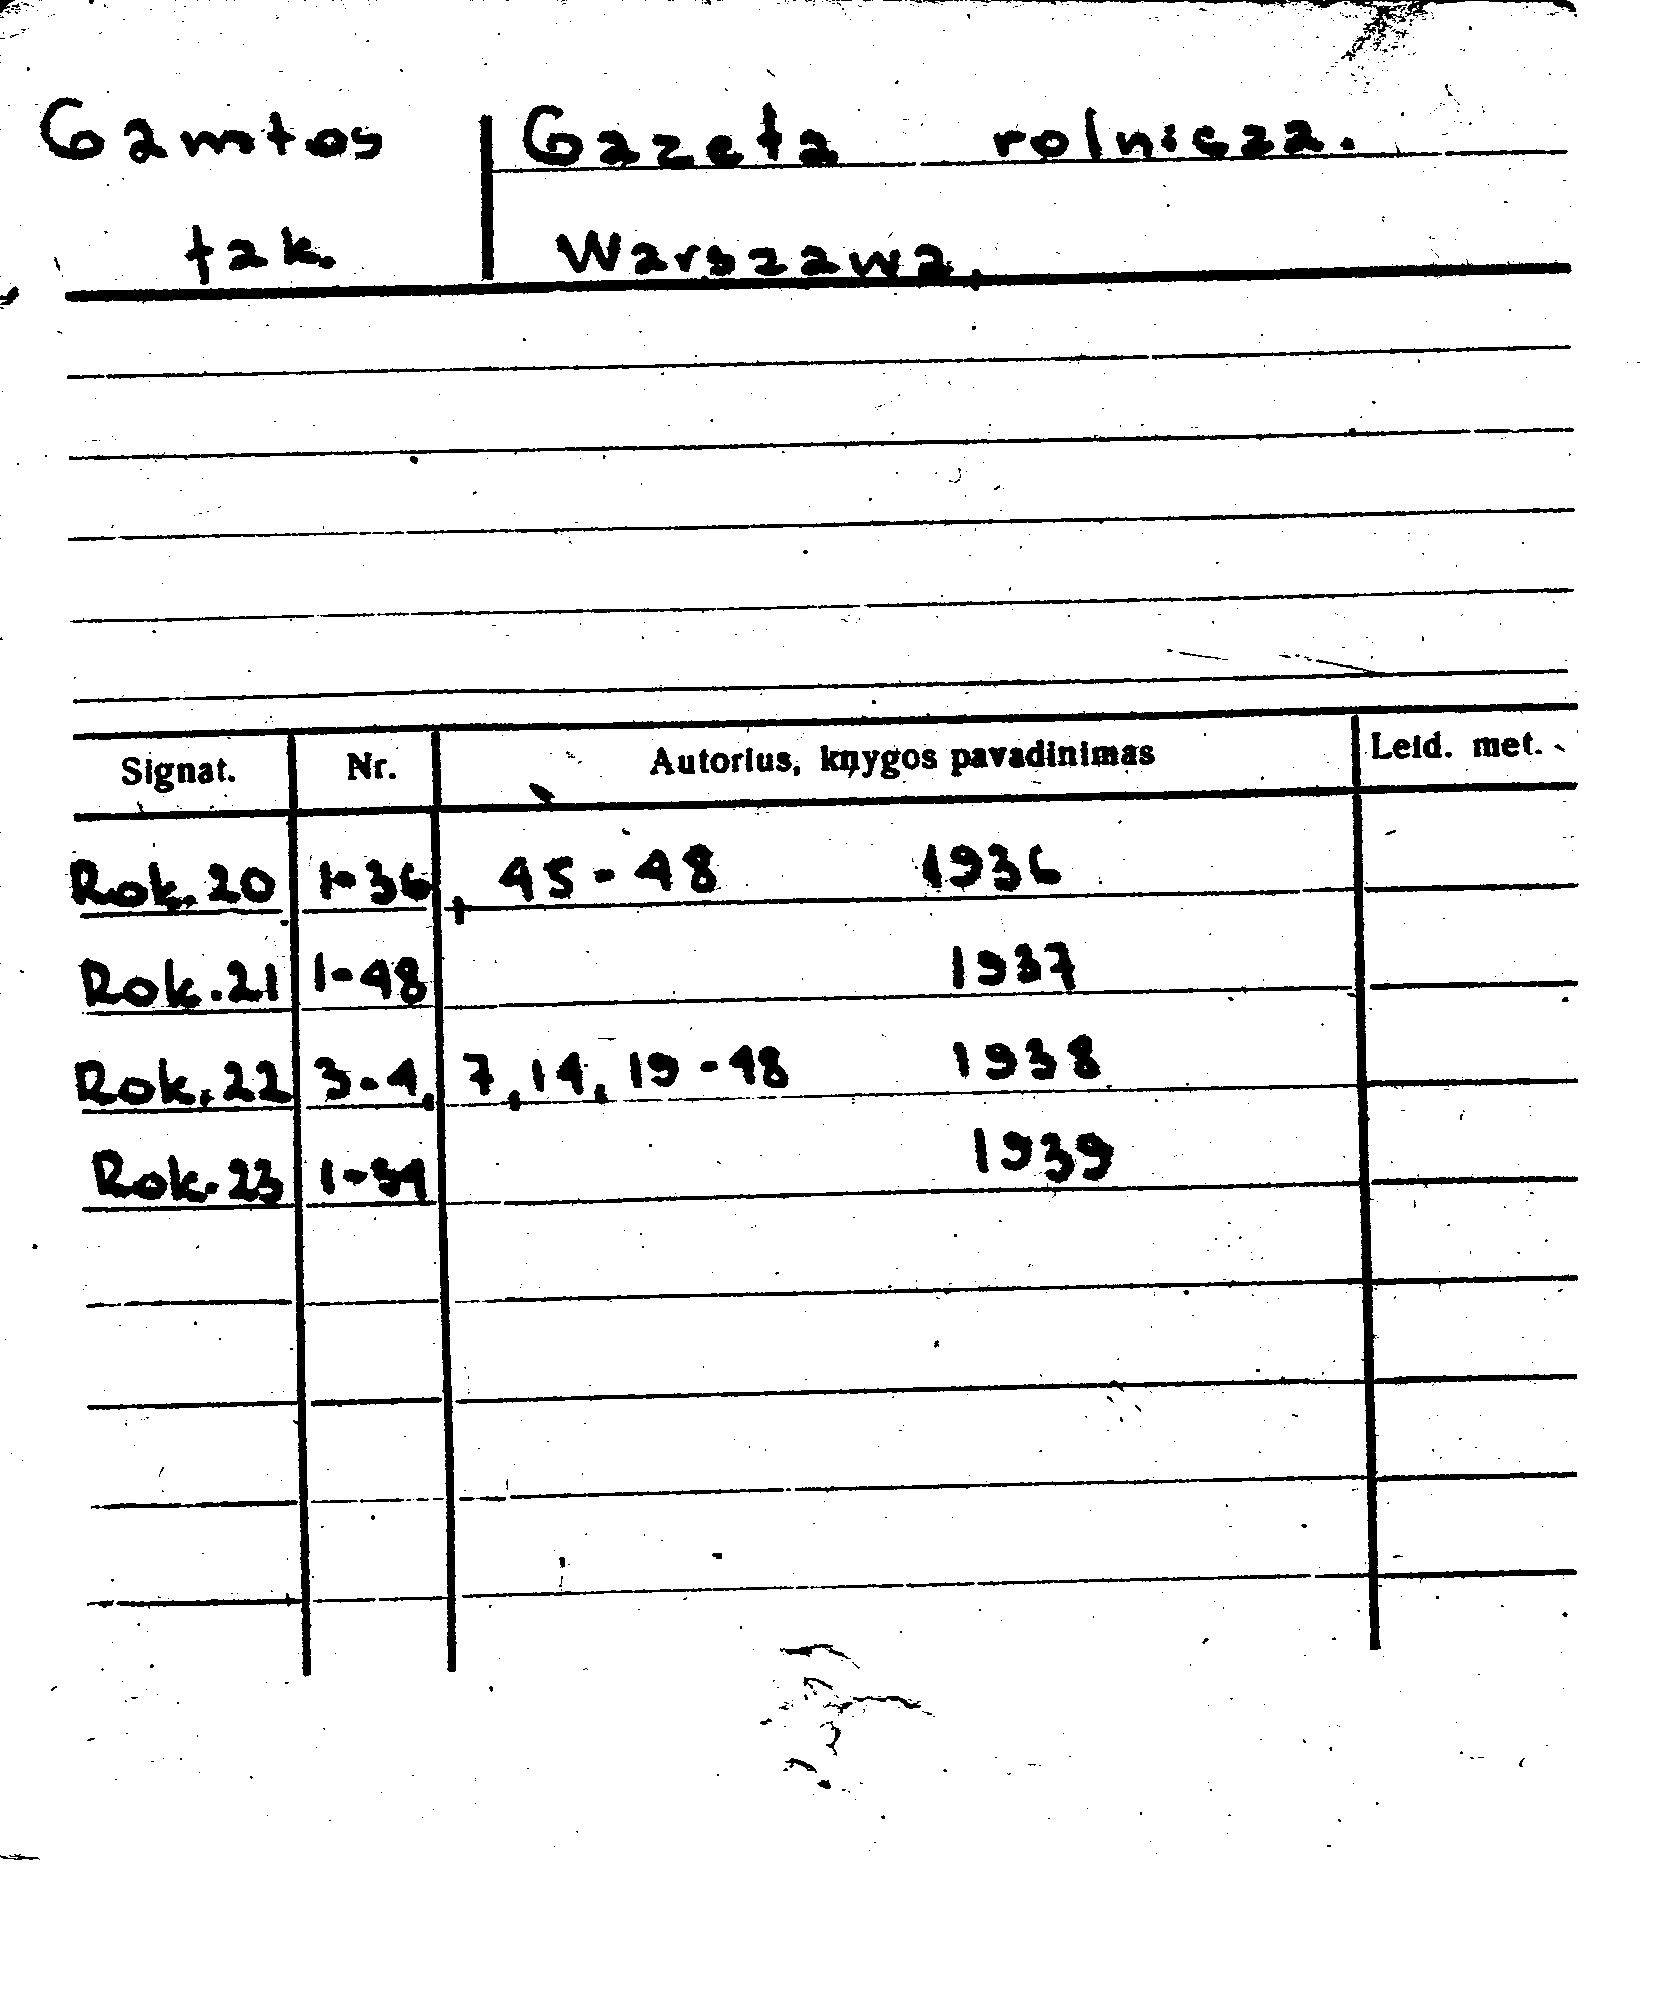 Gamtos Gazeta rolnicza.
tak. Warszawa,
Signat. Nr. Autorius, knygos pavadinimas Leid. met.
Rok. 20 1-36, 45-48 1936
Rok. 21 1-48 1937
Rok. 22 3-4, 7, 14, 19-48 1938
Rok. 23 1-34 1939